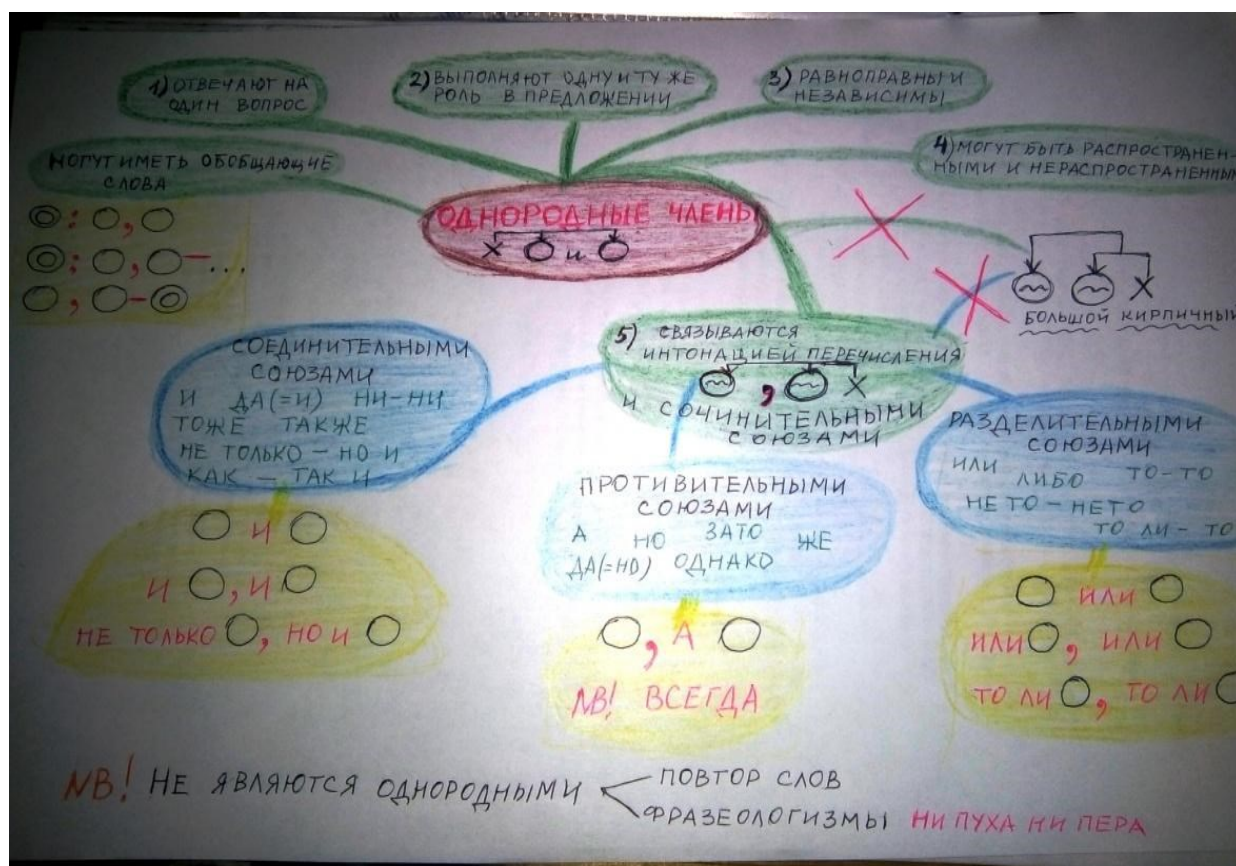 1) ОТВЕЧАЮТ НА
ОДИН ВОПРОС
2) ВЫПОЛНЯЮТ ОДНУ И ТУ ЖЕ
РОЛЬ В ПРЕДЛОЖЕНИИ
3) РАВНОПРАВНЫ И
НЕЗАВИСИМЫ
4) МОГУТ БЫТЬ РАСПРОСТРАНЕН-
НЫМИ И НЕРАСПРОСТРАНЕННЫМ
МОГУТ ИМЕТЬ ОБОБЩАЮЩИЕ
СЛОВА
ОДНОРОДНЫЕ ЧЛЕНЫ
и
БОЛЬШОЙ КИРПИЧНЫЙ
5) СВЯЗЫВАЮТСЯ
ИНТОНАЦИЕЙ ПЕРЕЧИСЛЕНИЯ
И СОЧИНИТЕЛЬНЫМИ
СОЮЗАМИ
СОЕДИНИТЕЛЬНЫМИ
СОЮЗАМИ
И ДА(=И) НИ-НИ
ТОЖЕ ТАКЖЕ
НЕ ТОЛЬКО - НО И
КАК - ТАК И
И
И , И
НЕ ТОЛЬКО , НО И
ПРОТИВИТЕЛЬНЫМИ
СОЮЗАМИ
А НО ЗАТО ЖЕ
ДА(=НО) ОДНАКО
, А
NB! ВСЕГДА
РАЗДЕЛИТЕЛЬНЫМИ
СОЮЗАМИ
ИЛИ ЛИБО ТО-ТО
НЕ ТО - НЕ ТО
ТО ЛИ - ТО
ИЛИ
ИЛИ , ИЛИ
ТО ЛИ , ТО ЛИ
NB! НЕ ЯВЛЯЮТСЯ ОДНОРОДНЫМИ
ПОВТОР СЛОВ
ФРАЗЕОЛОГИЗМЫ НИ ПУХА НИ ПЕРА